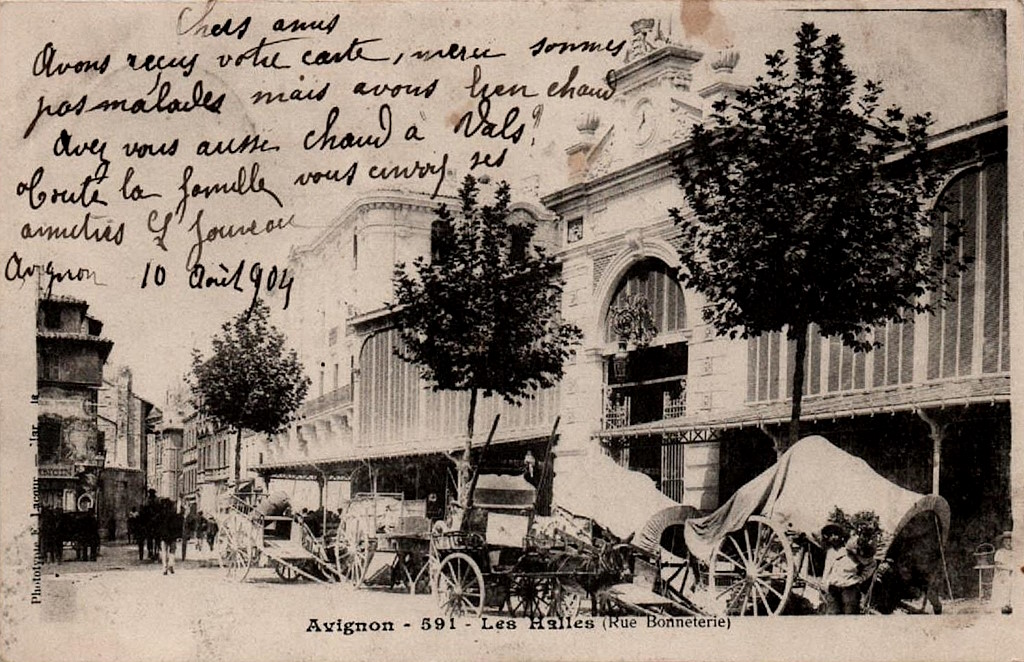 Chers amis
Avons reçus votre carte, merci sommes
pas malades mais avons bien chaud
Avez vous aussi chaud à Vals?
Toute la famille vous envoy ses
amitiés
Avignon 10 Août 904
Phototypie Lacour
Avignon - 591 - Les Halles (Rue Bonneterie)